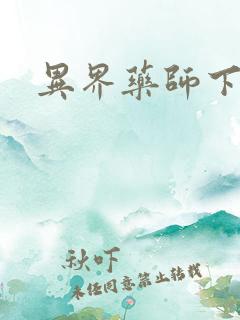 異界藥師下
秋吓
未經同意禁止轉載